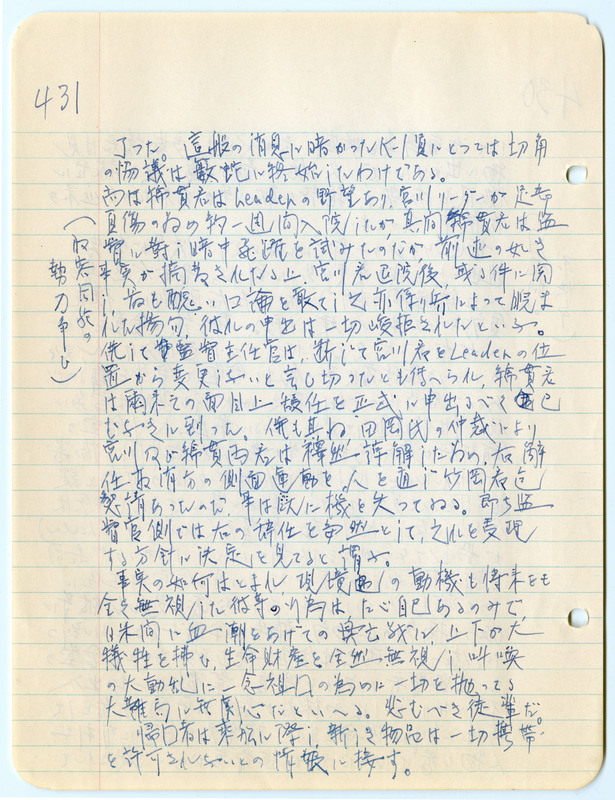 431
了った。這般の消息に暗かったK-1頃にとっては切角
の協議は藪蛇に終始したわけである。
両は綿貫君はLeaderの野望あり、宮川リーダーが足部
負傷の為め約一週間入院したが其間綿貫君は監
督に対し暗中飛躍を試みたのだが前述の如き
事実が摘発されたる上、宮川君退院後、或る件に関
し、尚も醜い口論を敢てし之亦係官によって睨ま
れた揚句、彼れの申出は一切峻拒されたといふ。
併して監督主任官は、断じて宮川君をLeaderの位
置から変更しないと言し切ったとも傳へられ、綿貫君
は爾来その面目上 辞任を正式に申出るべく
なきに到った。併も其ね 田岡氏の仲裁により
宮川及び綿貫両君は釋然諒解した為め、右辞
任取消方の側面運動を、人を通じ竹岡君迄
懇請あったので、早は既に機を失ってゐる。即ち監
督官側では右の辞任を当然として、之れを受理
する方針に決定を見てると謂ふ。
事実の如何はともあれ、現境の動機も将来をも
全く無視した彼等の行為は、たゞ自己あるのみで
日米間に血潮をあげての興亡戦に、上下が大
犠牲を拂ひ、生命財産を全然無視し、叫喚
の大動乱に一念祖国の為めに一切を抛ってる
大難局に無関心だといへる。悲むべき徒輩だ。
帰国者は乗船に際し、新しき物品は一切携帯
を許可されないとの情報に接す。
(内容同胞の
勢力争ひ)